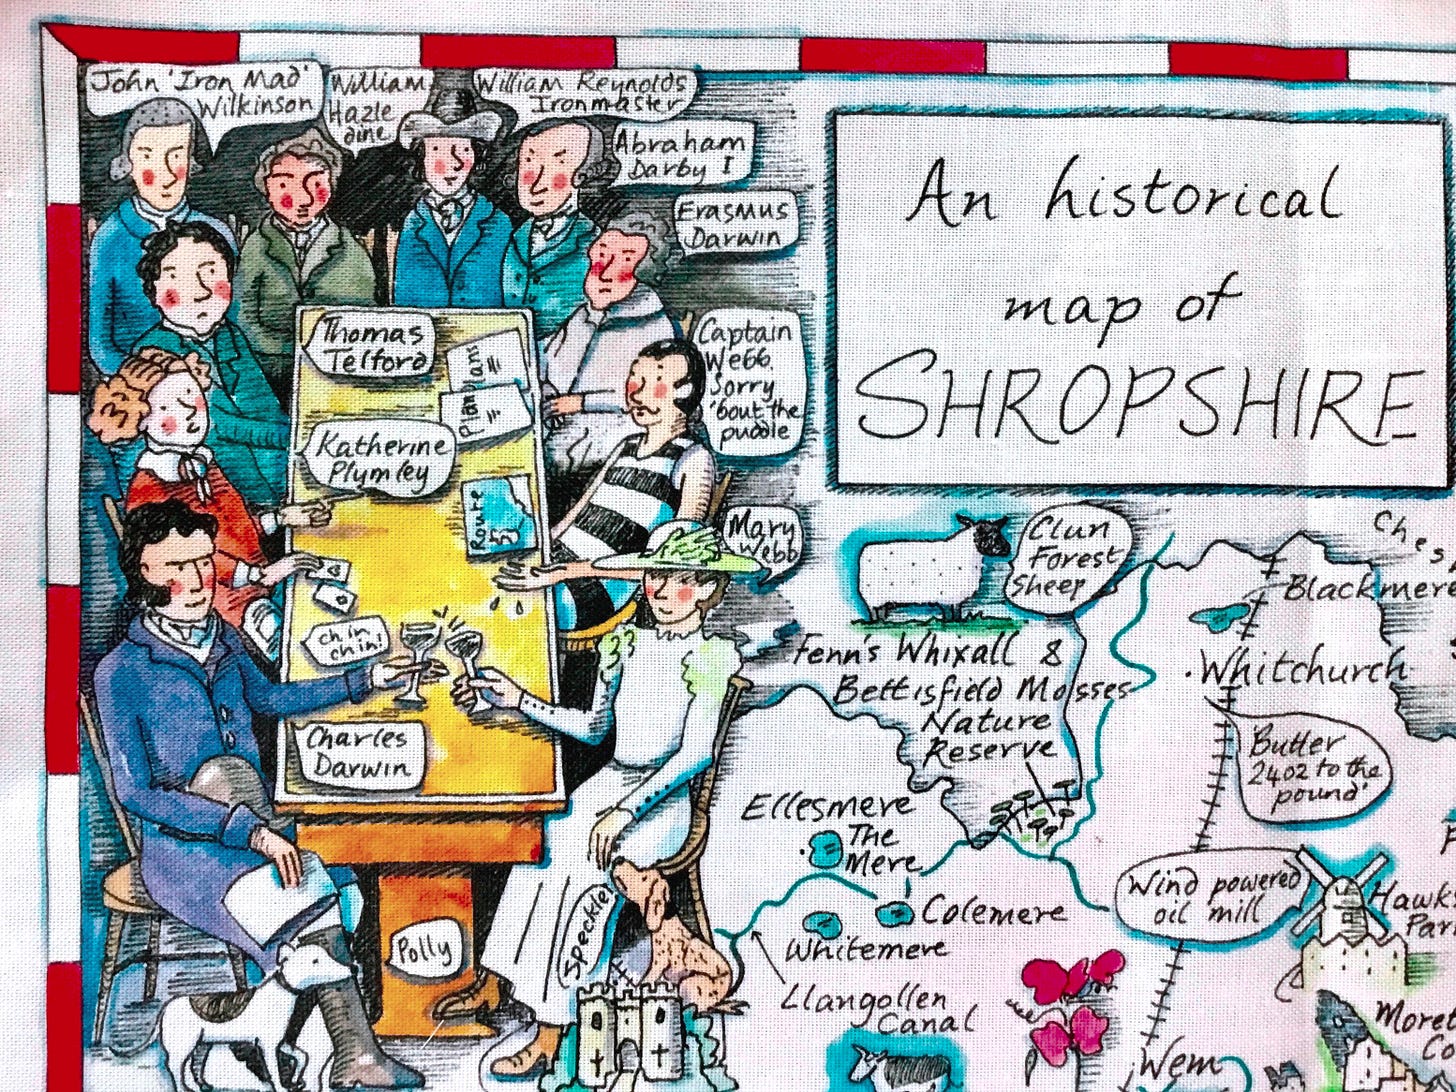 John 'Iron Mad'
Wilkinson
William
Hazle
dine
William Reynolds
Ironmaster
Abraham
Darby I
Erasmus
Darwin
Thomas
Telford
Plan
Plan
Captain
Webb.
Sorry
'bout the
puddle
Katherine
Plymley
Route
Mary
Webb
chin
chin!
Charles
Darwin
Polly
Speckle
An historical
map of
SHROPSHIRE
Clun
Forest
Sheep
Ches
Blackmer
Fenn's Whixall &
Bettisfield Mosses
Nature
Reserve
Whitchurch
Butter
'24oz to the
pound'
Ellesmere
The
Mere
Wind powered
oil mill
Hawk
Par
Colemere
Whitemere
Llangollen
Canal
Moret
Co
Wem